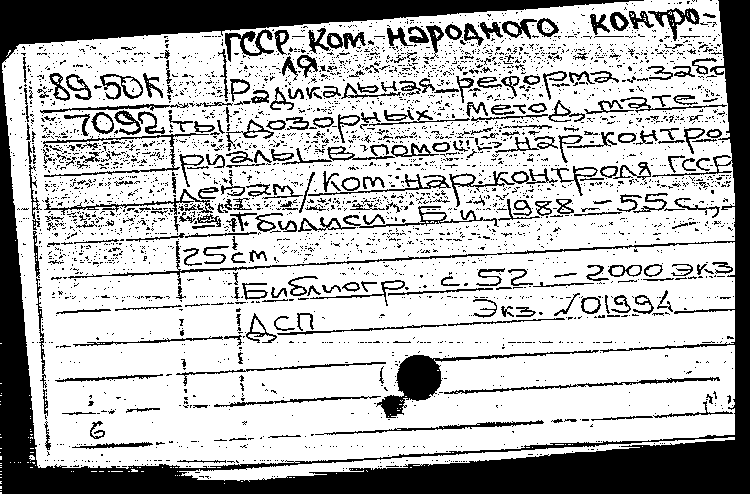 ГССР Ком. народного контро-
ля.
89-50К Радикальная реформа. Забо
7092 ты дозорных. Метод. мате-
риалы в помощь нар. контро
лерам / Ком. нар. контроля ГССР
– Тбилиси: Б. и., 1988. – 55 с.,
25 см.
Библиогр.: с. 52. – 2000 экз
ДСП Экз. √01994
6